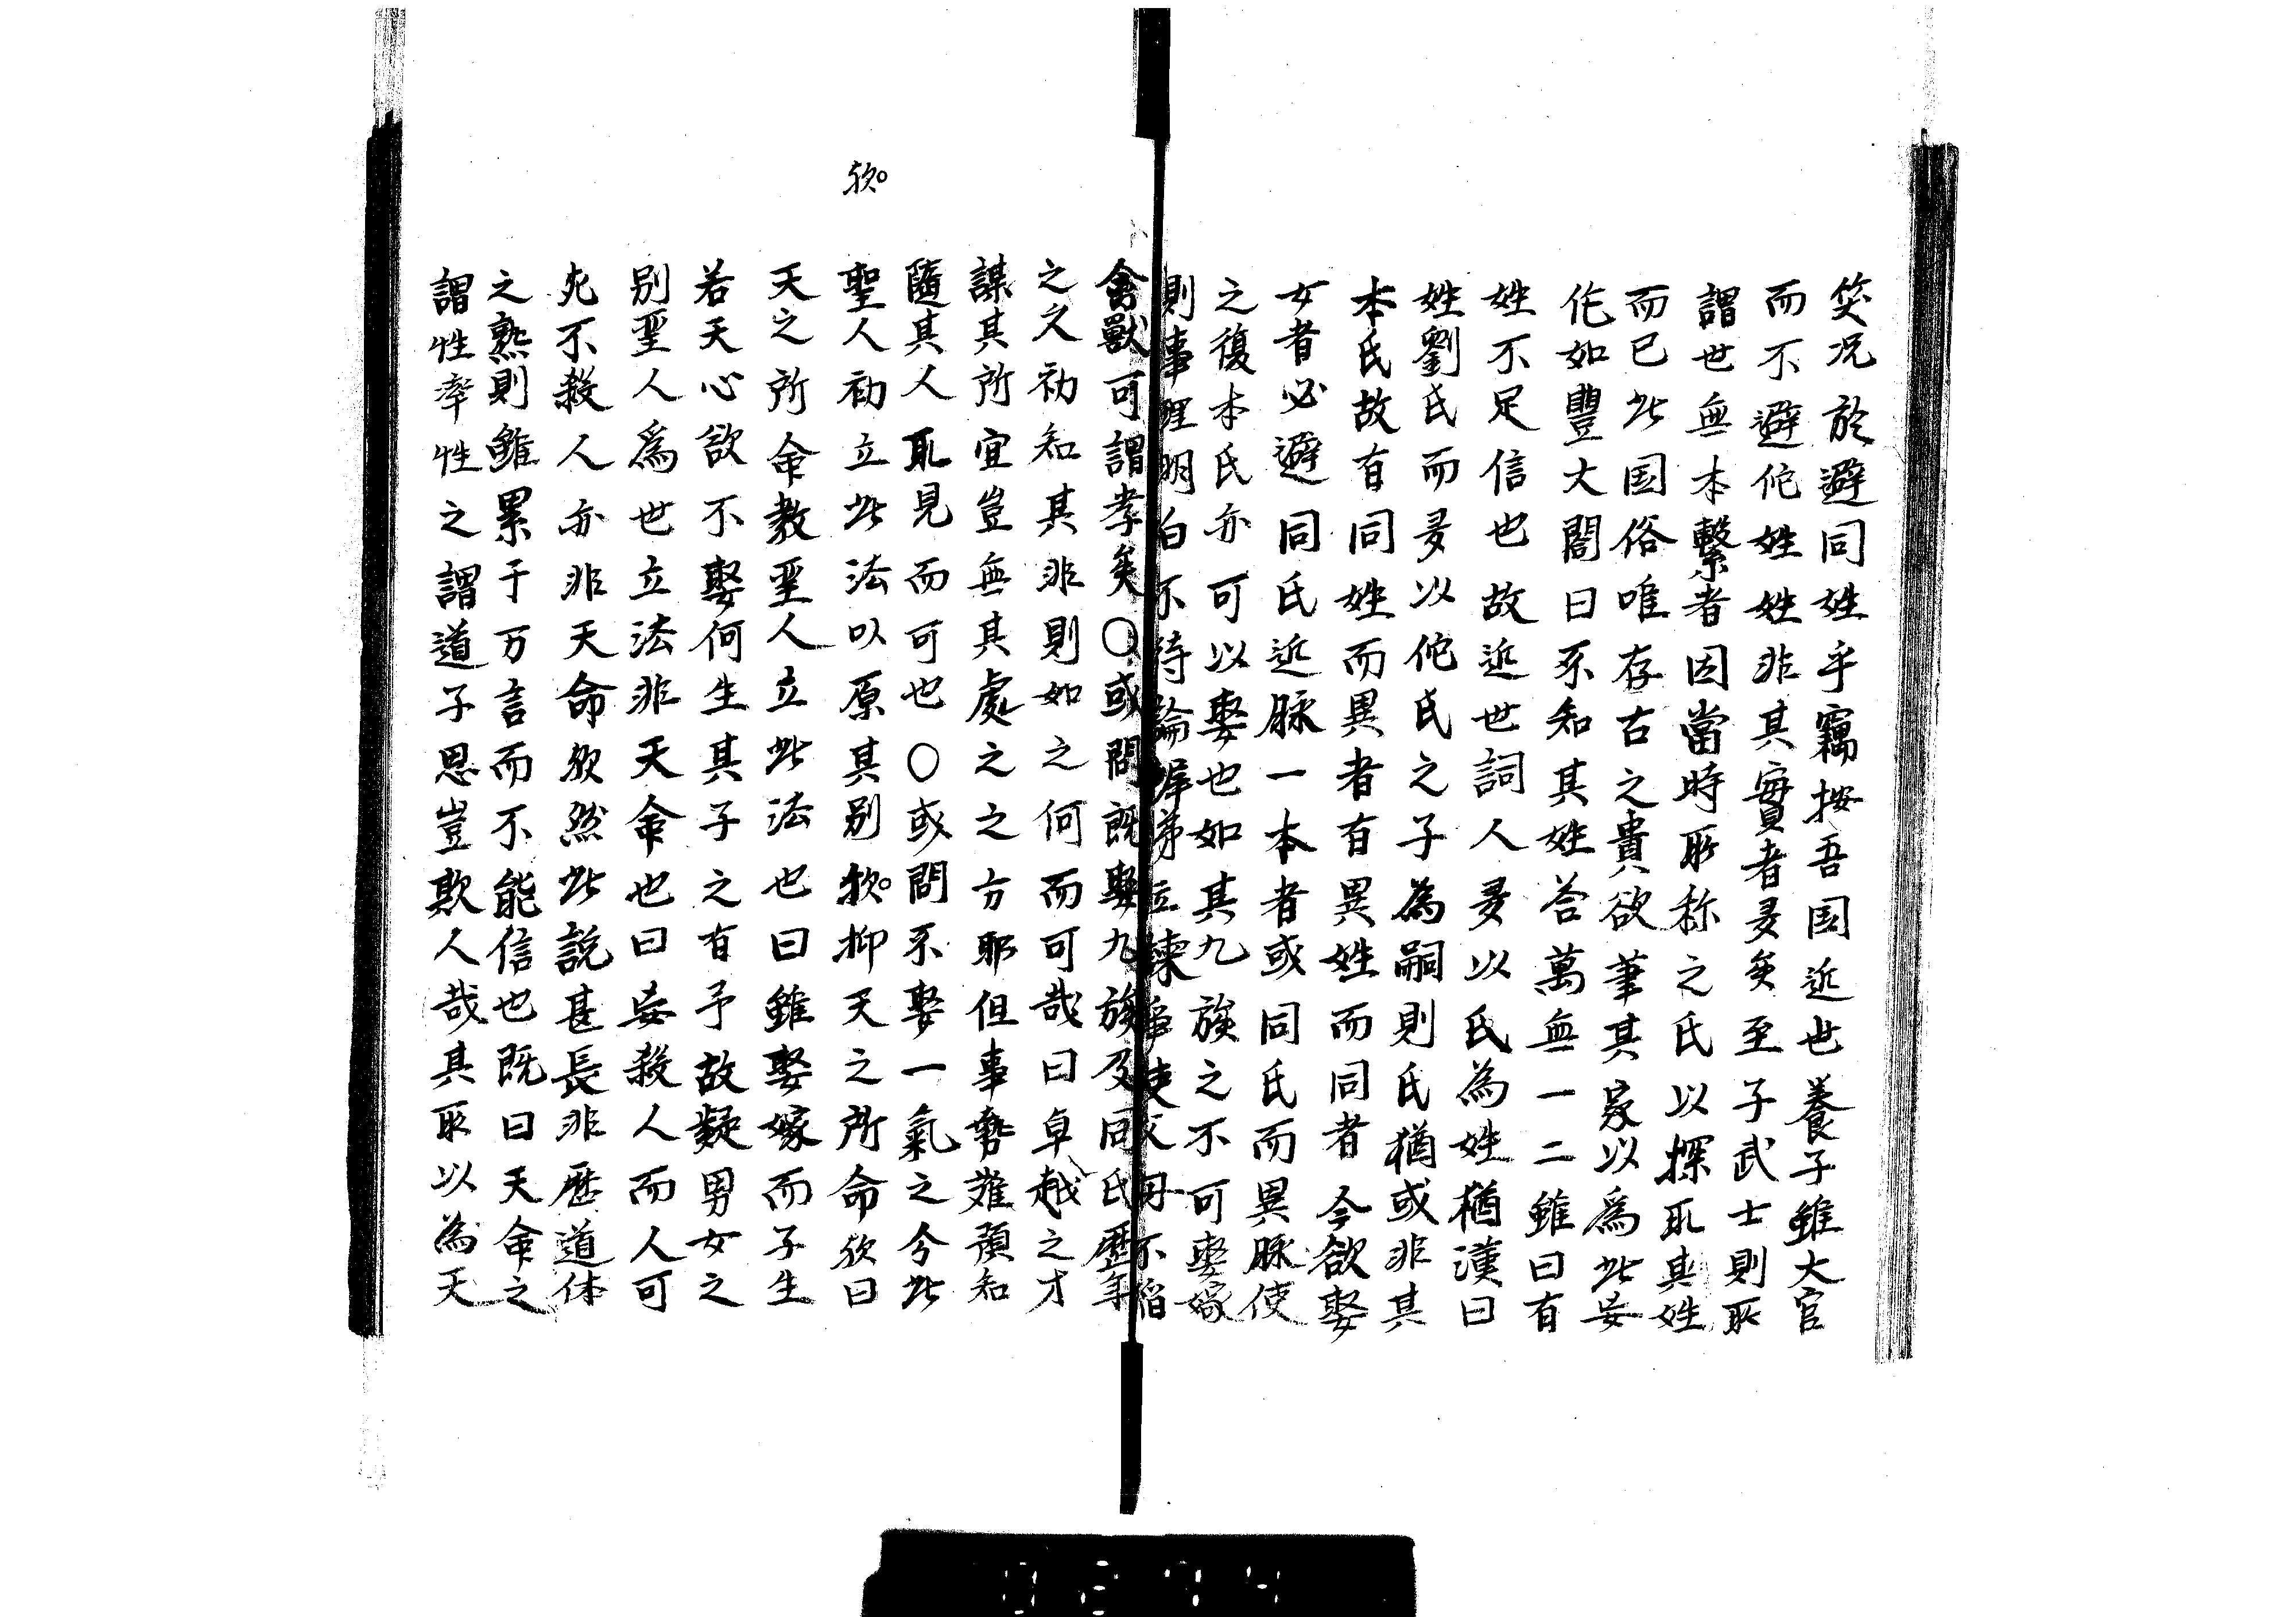 笑況於避同姓乎竊按吾国近世養子雖大官
而不避佗姓姓非其實者多矣至子武士則取
謂世無本繫者因當時所称之氏以探取其姓
而已此国俗唯存古之貴欲筆其家以為此妄
佗如豐大閤曰不知其姓答萬無一二雖曰有
姓不足信也故近世詞人多以氏為姓猶漢曰
姓劉氏而多以佗氏之子為嗣則氏猶或非其
本氏故有同姓而異者有異姓而同者今欲娶
女者必避同氏近脉一本者或同氏而異脉使
之復本氏亦可以娶也如其九族之不可娶嫁
則事理明白不待論 諫 父母不
禽獸可謂孝矣○或問既娶九族及同氏歷年
之久初知其非則如之何而可哉曰卓越之才
謀其所宜豈無其處之之方耶但事勢難預知
隨其人取見而可也○或問不娶一氣之今此
聖人初立此法以原其别欤抑天之所命欤曰
天之所命教聖人立此法也曰雖娶嫁而子生
若天心欲不娶何生其子之有予故疑男女之
别聖人為世立法非天命也曰妄殺人而人可
死不殺人亦非天命欤然此說甚長非歷道体
之熟則雖累于万言而不能信也既曰天命之
謂性率性之謂道子思豈欺人哉其取以為天
欤